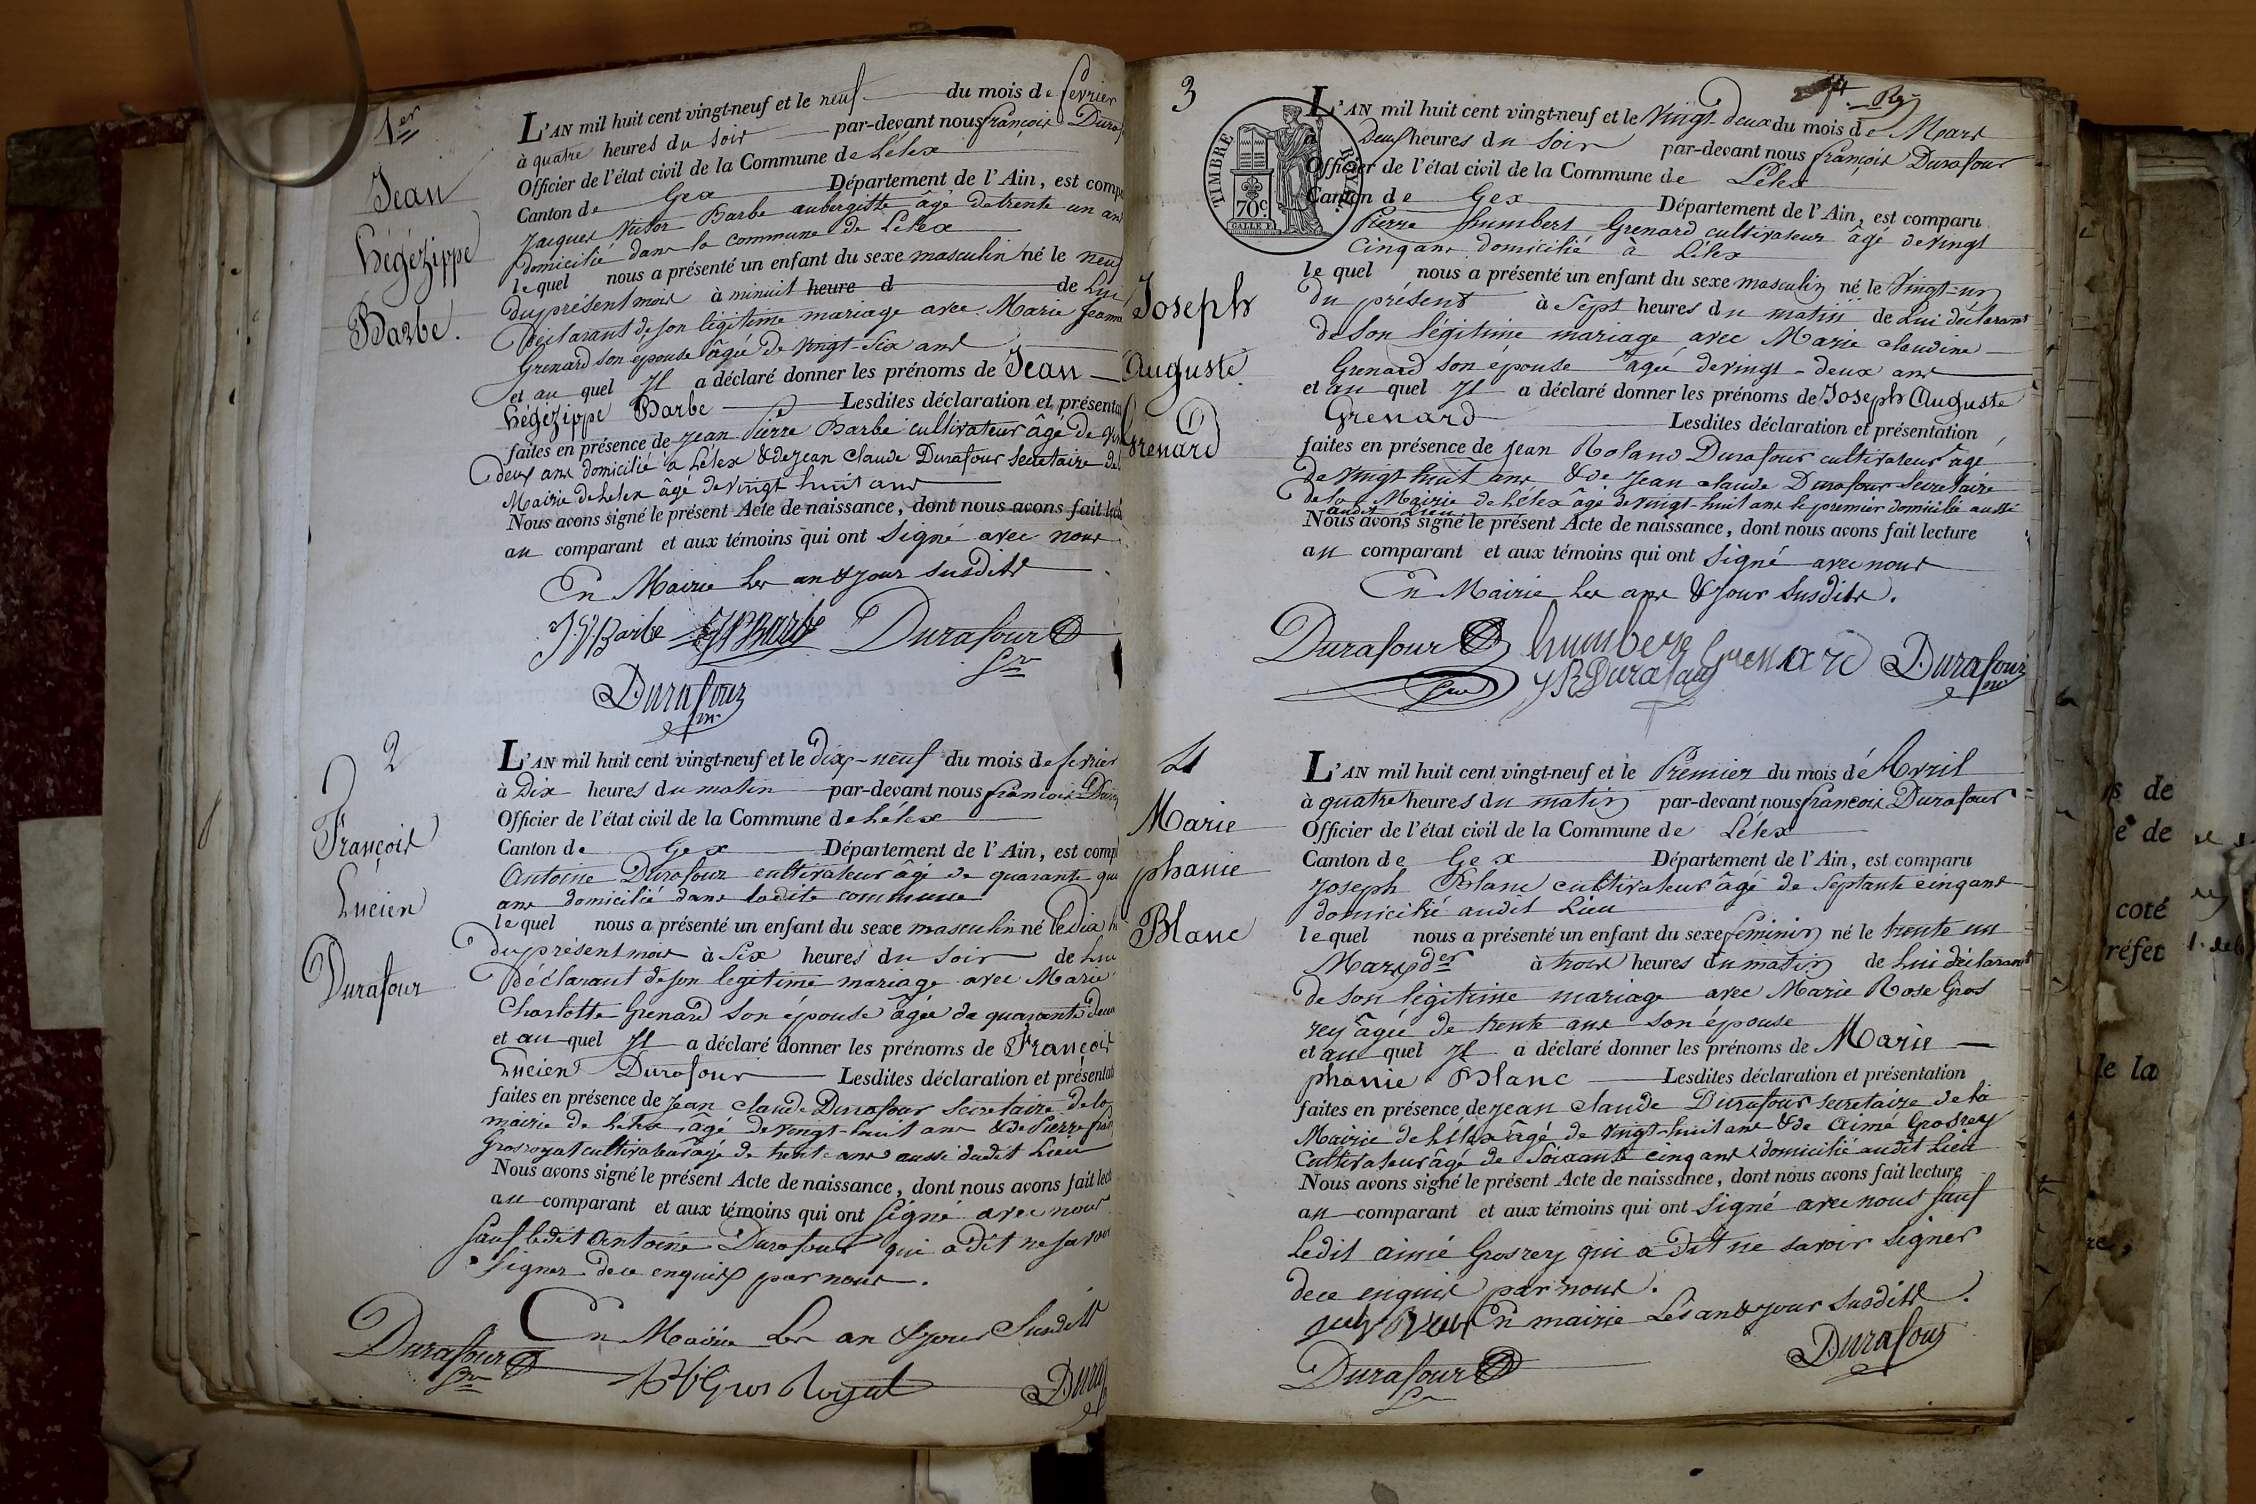 1er
Jean
hégézippe
Barbe.
L'AN mil huit cent vingt-neuf et le neuf du mois de fevrier
à quatre heures du soir par-devant nous françois
Officier de l'état civil de la Commune de Lélex
Canton de Gex Département de l'Ain, est
Jacques Victor Barbe aubergiste âgé de trente un
domicilié dans la commune de Lélex
lequel nous a présenté un enfant du sexe masculin né le neuf
du présent mois à minuit heure d de Lui
Déclarant de son légitime mariage avec Marie
Grenard son épouse âgée de vingt-six ans
et au quel Il a déclaré donner les prénoms de Jean
hégézippe Barbe Lesdites déclaration et
faites en présence de Jean Pierre Barbe cultivateur âgé de
deux ans domicilié à Lélex & de Jean Claude Durafour secretaire
Mairie de Lelex âgé de vingt huit ans
Nous avons signé le présent Acte de naissance, dont nous avons fait
au comparant et aux témoins qui ont Signé avec nous
En Mairie Les an & jour susdits
J.V. Barbe J P Barbe Durafour
Durafour
2
François
Lucien
Durafour
L'AN mil huit cent vingt-neuf et le Dix-neuf du mois de fevrier
à Dix heures du matin par-devant nous francois
Officier de l'état civil de la Commune de Lélex
Canton de Gex Département de l'Ain, est
Antoine Durafour cultivateur âgé de quarante
ans domicilié dans ladite commune
lequel nous a présenté un enfant du sexe masculin né le Dix
du présent mois à Six heures du soir de Lui
Déclarant de son légitime mariage avec Marie
Charlotte Grenard son épouse âgée de quarante deux
et au quel Il a déclaré donner les prénoms de François
Lucien Durafour Lesdites déclaration et
faites en présence de Jean Claude Durafour Secretaire de la
mairie de Lélex, âgé de vingt-huit ans & de Pierre
Grosroyat cultivateur âgé de trente ans aussi dudit Lieu
Nous avons signé le présent Acte de naissance, dont nous avons fait
au comparant et aux témoins qui ont Signé avec nous
Sauf ledit Antoine Durafour qui a Dit ne savoir
Signer de ce enquis par nous.
En Mairie Les an & jour Susdits
Durafour Gros Royat
3
Joseph
Auguste
Grenard
TIMBRE ROYAL
70c
L'AN mil huit cent vingt-neuf et le Vingt-deux du mois de Mars
à Deux heures du Soir par-devant nous françois Durafour
Officier de l'état civil de la Commune de Lélex
Canton de Gex Département de l'Ain, est comparu
Pierre humbert Grenard cultivateur âgé de vingt
Cinq ans domicilié à Lélex
lequel nous a présenté un enfant du sexe masculin né le Vingt-un
du présent à Sept heures du matin de Lui déclarant
de Son légitime mariage avec Marie Claudine
Grenard son épouse âgée de vingt-deux ans
et au quel Il a déclaré donner les prénoms de Joseph Auguste
Grenard Lesdites déclaration et présentation
faites en présence de Jean Roland Durafour cultivateur âgé
de vingt huit ans & de Jean Claude Durafour Secretaire
de la Mairie de Lélex âgé de vingt-huit ans le premier domicilié aussi
audit Lieu
Nous avons signé le présent Acte de naissance, dont nous avons fait lecture
au comparant et aux témoins qui ont Signé avec nous
En Mairie Les ans & jour Susdits.
Durafour humbert Grenard Durafour
J R Durafour
4
Marie
phanie
Blanc
L'AN mil huit cent vingt-neuf et le Premier du mois de Avril
à quatre heures du matin par-devant nous francois Durafour
Officier de l'état civil de la Commune de Lélex
Canton de Gex Département de l'Ain, est comparu
Joseph Blanc cultivateur âgé de Septante cinq ans
domicilié audit Lieu
lequel nous a présenté un enfant du sexe féminin né le trente un
Mars der à trois heures du matin de Lui déclarant
de son légitime mariage avec Marie Rose Gros
rey âgée de trente ans son épouse
et au quel Il a déclaré donner les prénoms de Marie
phanie Blanc Lesdites déclaration et présentation
faites en présence de Jean Claude Durafour secretaire de la
Mairie de Lélex âgé de vingt-huit ans & de Aimé Grosrey
Cultivateur âgé de Soixante cinq ans domicilié audit Lieu
Nous avons signé le présent Acte de naissance, dont nous avons fait lecture
au comparant et aux témoins qui ont Signé avec nous sauf
Ledit aimé Grosrey qui a Dit ne savoir Signer
de ce enquis par nous.
En mairie Les an & jour susdits.
Durafour Durafour
de
de
coté
le la